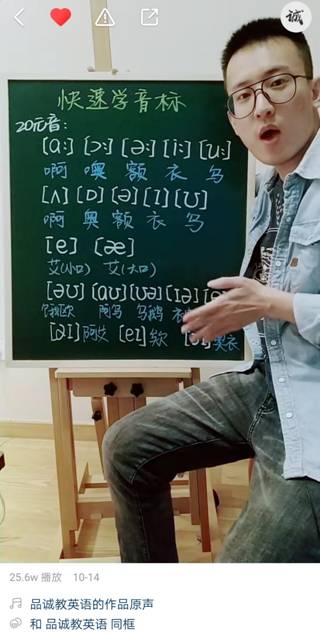 诚
快速学音标
20元音:
[ɑ:] [ɔ:] [ə:] [i:] [u:]
啊 噢 额 衣 乌
[ʌ] [ɒ] [ə] [ɪ] [ʊ]
啊 奥 额 衣 乌
[e] [æ]
艾(小口) 艾(大口)
[əʊ] [aʊ] [ʊə] [ɪə]
阿乌 乌鹅
[aɪ] 阿艾 [eɪ]
25.6w 播放 10-14
品诚教英语的作品原声
和 品诚教英语 同框